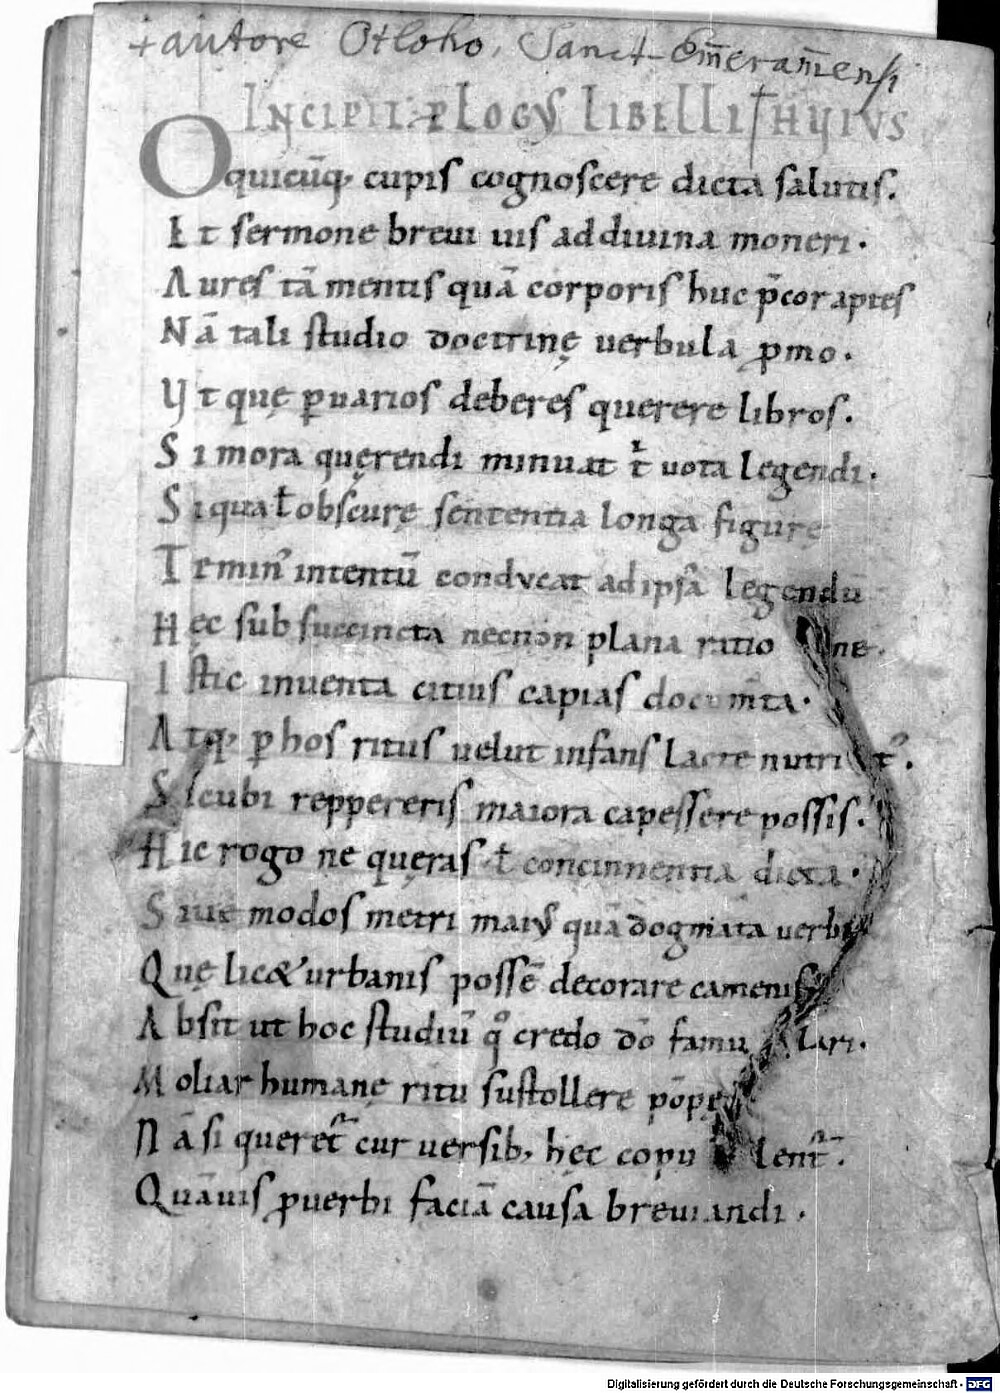 + autore Otloho, Sanct-Em̅eram̅ensi
INCIPIT PLOGVS LIBELLI HVIVS
O quicūq; cupis cognoscere dicta salutis.
Et sermone breui uis ad diuina moneri.
Aures tā mentis quā corporis huc p̄cor aptes
Nā tali studio doctrinę uerbula ꝓmo.
Vt quę ꝑ uarios deberes querere libros.
Si mora quęrendi minuat t̄ uota legendi.
Si qua ł obscurę sententia longa figurę
Te min' intentū conducat ad ipsā legendū
Hęc sub succincta necnon plana ratione.
Istic inuenta citius capias docum̄ta.
Atq; ꝑ hos ritus uelut infans lacte nutrit'.
Sicubi reppereris maiora capessere possis.
Hic rogo ne quęras ł concinnentia dicta.
Siue modos metri maiꝰ quā dogmata uerbi
Quę lic& urbanis possē decorare camenis
Absit ut hoc studiū qͦ credo dō famulari.
Moliar humanę ritu sustollere pōpę
Nā si queret᷑ cur uersib; hęc copulent᷑.
Quāuis ꝓuerbi faciā causa breuiandi.
Digitalisierung gefördert durch die Deutsche Forschungsgemeinschaft - DFG